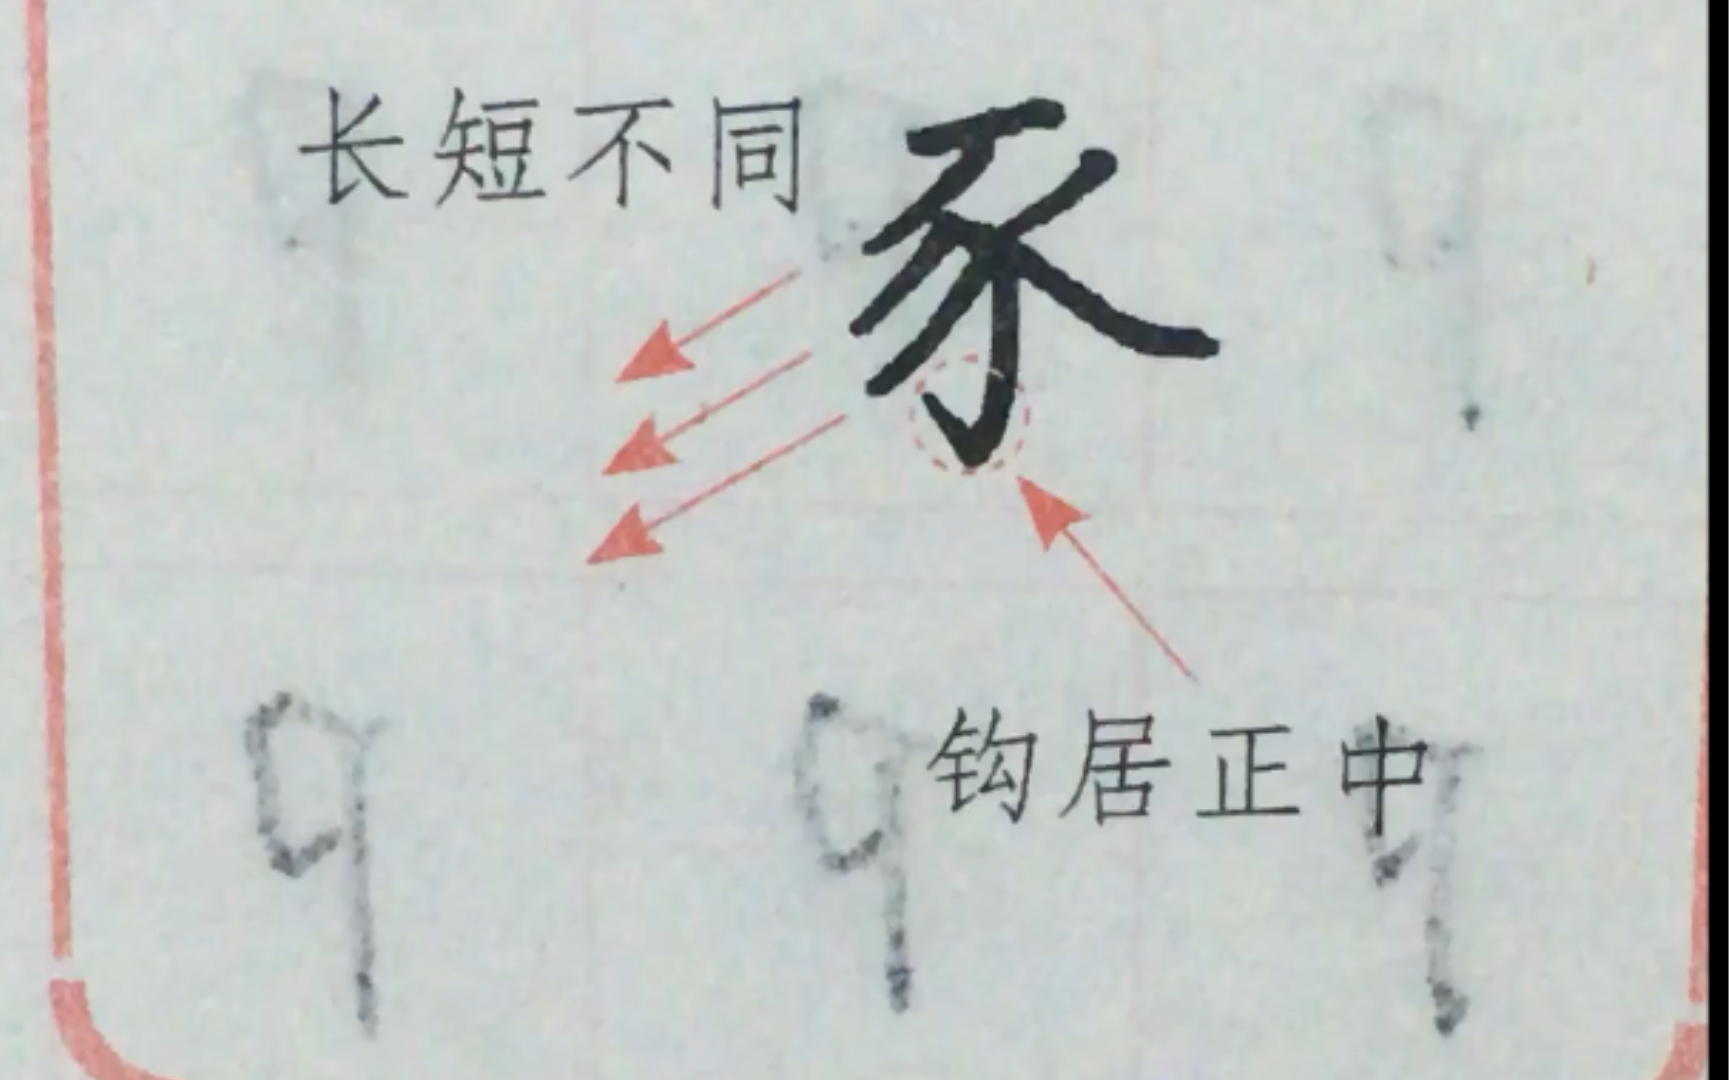 长短不同
豕
钩居正中